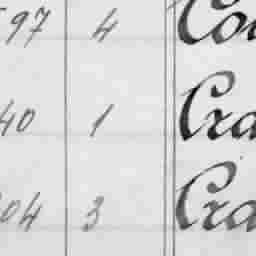 597 4 Co
40 1 Cra
04 3 Cra